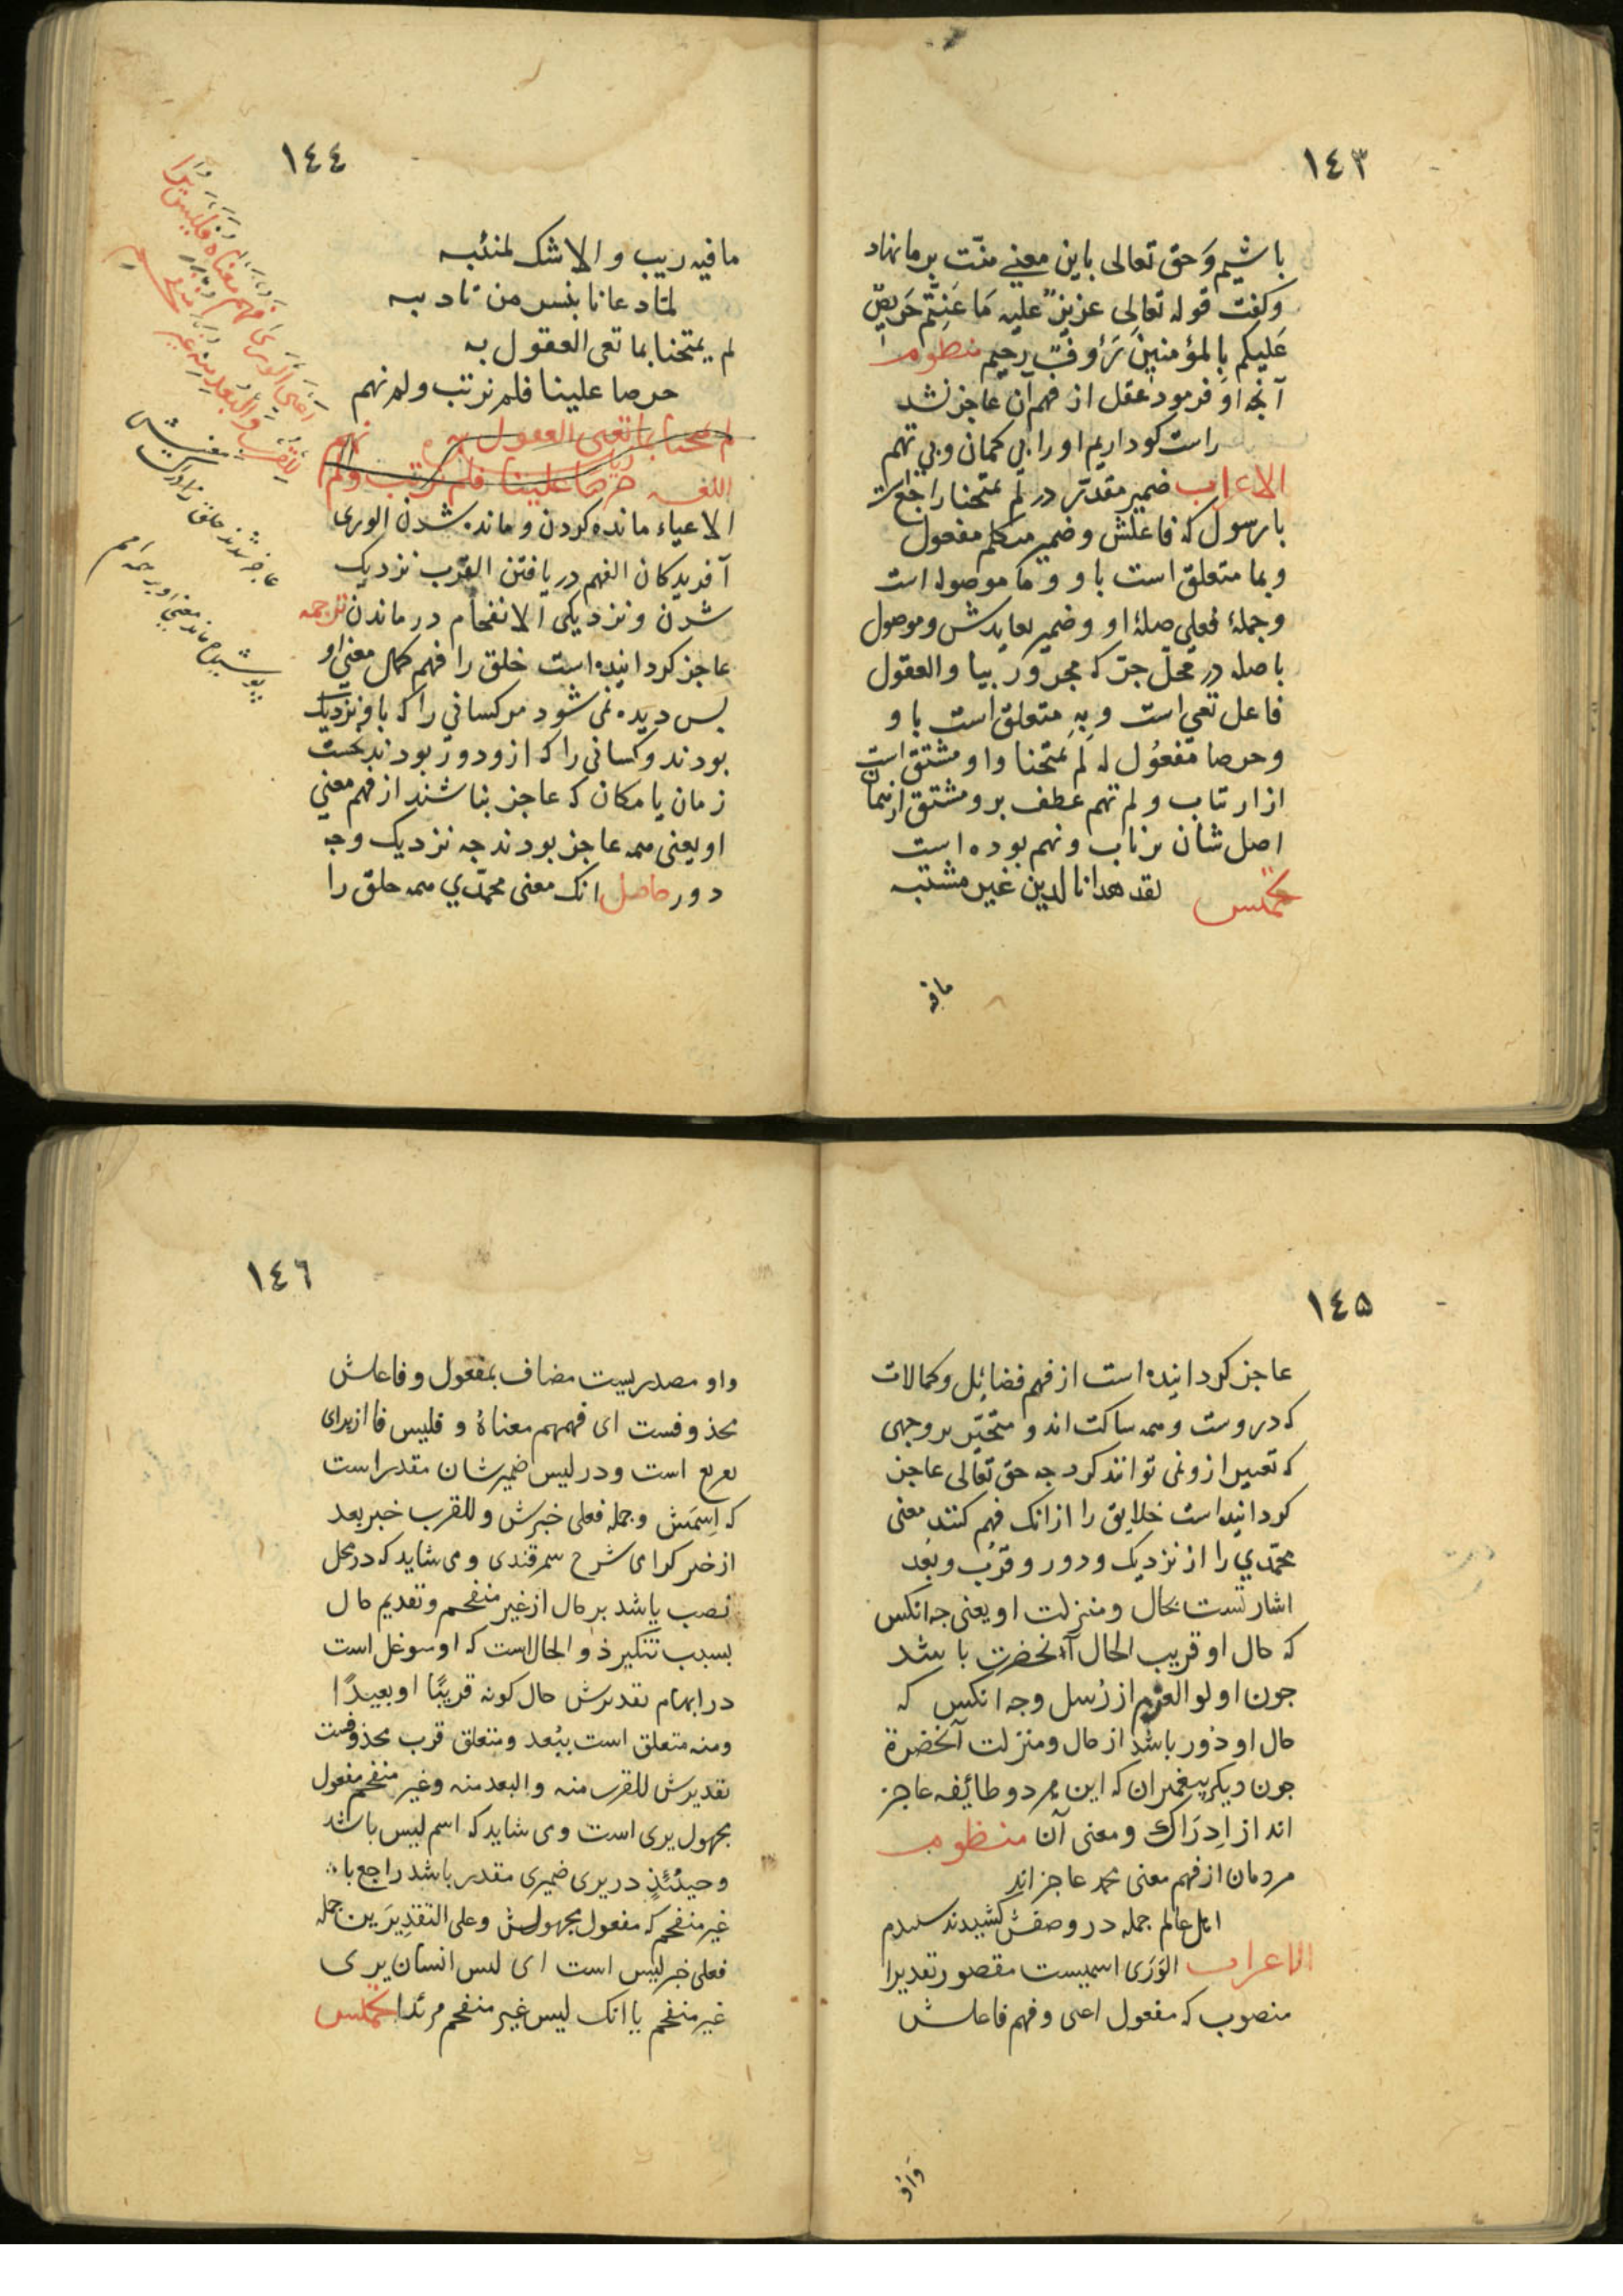 ١٤٣
باشیم وَحق تعالی باین معنی منّت بر ما نهاد
وکفت قوله تعالی عزیزٌ علیه مَا عَنِتُّم حَرِیصٌ
عَلیکم بِالمؤمنینَ رَؤوفٌ رحیم منظومه
آنچه او فرمود عقل از فهم آن عاجز نشد
راست کو داریم او را بی کمان وبی تهم
الاعراب ضمیر مقدّر در لم یمتحنا راجع است
با رسول که فاعلش وضمیر متکلم مفعول
وبما متعلق است باو وما موصوله است
وجملهٔ فعلی صلهٔ او وضمیر به عایدش وموصول
باصله در محلّ جرّ که مجرور ببا والعقول
فاعل تعی است وبِهِ متعلق است باو
وحرصا مفعُول له لم یمتحنا واو مشتق است
از ارتاب ولم نهم عطف برو مشتق از نهمان
اصل شان نرتاب ونهم بوده است
مخمّس لقد هدانا لدین غیر مشتبه
مافیه
١٤٤
مافیه ریب و الا شک لمنتبه
لمّا دعانا بنس من تادبه
لم یمتحنا بما تعی العقول به
حرصا علینا فلم نرتب ولم نهم
لم یمتحنا بما تعی العقول به
حرصا علینا فلم نرتب ولم نهم
اللغه
الاعیاء مانده کردن ومانده شدن الوری
آفریدکان الفهم دریافتن القرب نزدیک
شدن ونزدیکی الانفحام درماندن ترجمه
عاجز کردانیده است خلق را فهم کمال معنی او
بس دیده نمی شود مر کسانی را که باو نزدیک
بودند وکسانی را که ازو دور بودند بحسب
زمان یا مکان که عاجز بناشند از فهم معنی
او یعنی همه عاجز بودند چه نزدیک وچه
دور حاصل انک معنی محمّدي همه خلق را
اَعیَی الوَرَی فَهمُ مَعناهُ فَلَیسَ یُرَی
لِلقُربِ وَالبُعدِ مِنهُ غَیرُ مُنفَحِمِ
عاجز شدند خلق ز ادراک معنیش
پوشیده ماند معنی او بر همه امم
١٤٥
عاجز کردانیده است از فهم فضائل وکمالات
که در وست وهمه ساکت اند و متحیّر بر وجهی
که تعبیر ازو نمی توانند کرد چه حق تعالی عاجز
کردانیده است خلایق را از انک فهم کنند معنی
محمّدي را از نزدیک ودور وقرب وبعد
اشارتست بحال ومنزلت او یعنی چه انکس
که حال او قریب الحال آنحضرت باشد
چون اولو العزم از رُسل وچه انکس که
حال او دُور باشد از حال ومنزلت آنحضرة
چون دیکر پیغمبران که این هر دو طائفه عاجز
اند از اِدرَاک ومعنی آن منظومه
مردمان از فهم معنی محمد عاجز اند
اهل عالم جمله در وصفش کشیدند
الاعراب الوَرَی اسمیست مقصور تقدیرا
منصوب که مفعول اعی وفهم فاعلش
واو
١٤٦
واو مصدریست مضاف بمفعول وفاعلش
محذوفست ای فهمهم معناهُ و فلیس فا از برای
تعریع است ودر لیس ضمیر شان مقدر است
که اِسمَش وجمله فعلی خبرش وللقرب خبر بعد
از خبر شرح سمرقندی ومی شاید که در محل
نصب باشد بر حال از غیر منفحم وتقدیم حال
بسبب تنکیر ذو الحال است که او موغل است
در ابهام تقدیرش حال کونه قریبًا او بعیدًا
ومنه متعلق است ببُعد ومتعلق قرب محذوفست
تقدیرش للقرب منه والبعد منه وغیر منفحم مفعول
مجهول یری است ومی شاید که اسم لیس باشد
وحینئذٍ در یری ضمیری مقدر باشد راجع با
غیر منفحم که مفعول مجهولش وعلی التقدِیرَین جمله
فعلی خبر لیس است ای لیس انسان یری
غیر منفحم یا انک لیس غیر منفحم مرئدا مخمّس